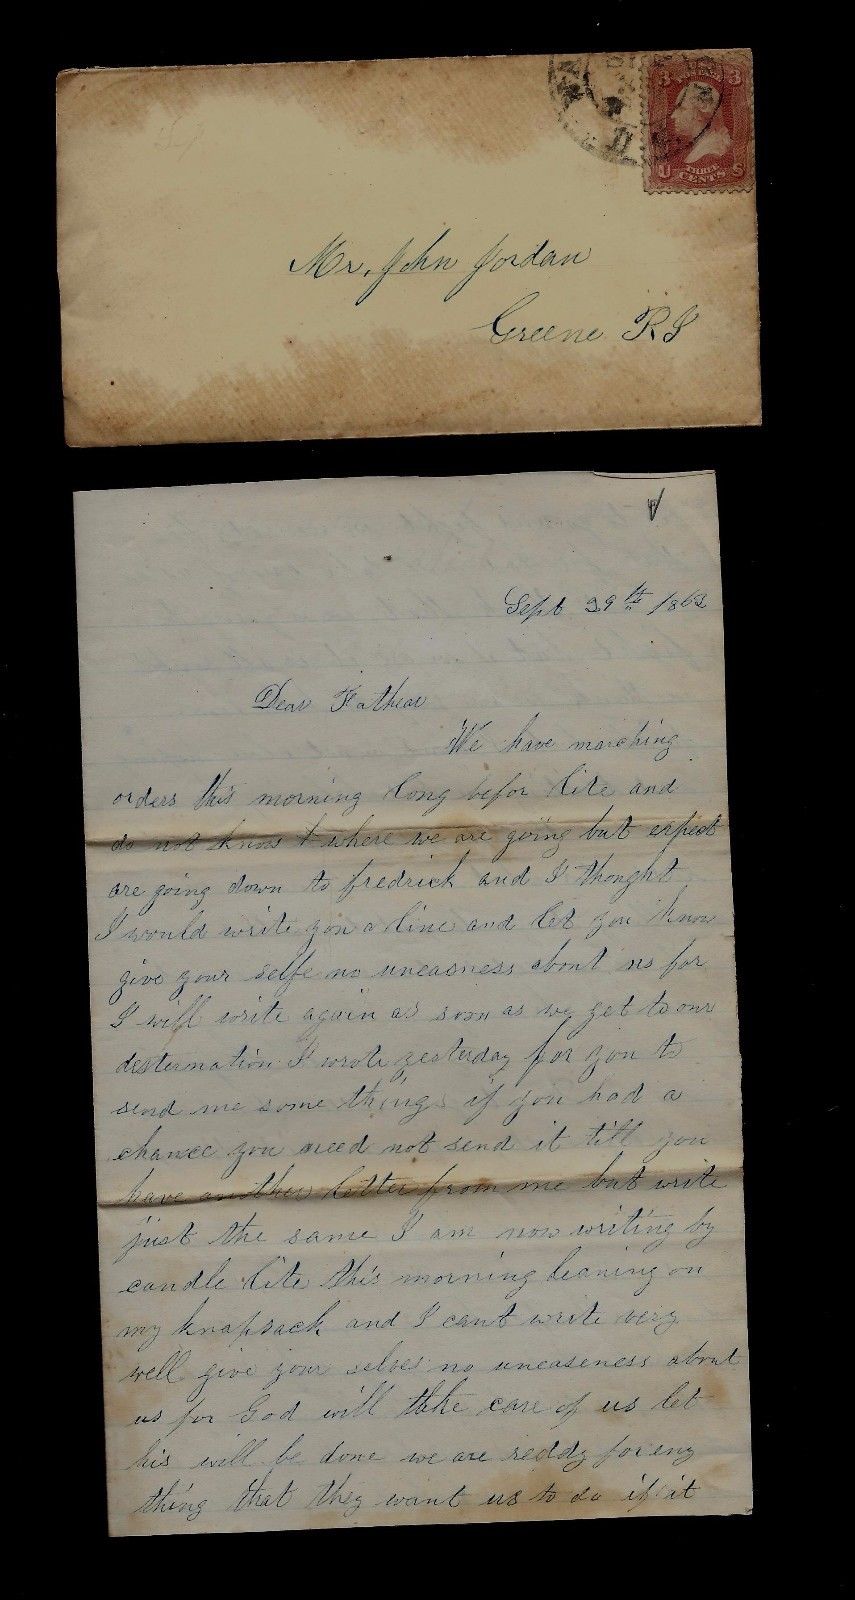 3 3
U THREE CENTS S
11
Mr. John Jordan
Greene R I
Sept 29th 1862
Dear Fathear
We have marching
orders this morning long befor lite and
do not know where we are going but expect
are going down to fredrick and I thought
I would write you a line and let you know
give your selfe no uneasness about us for
I will write again as soon as we get to our
desternation I wrote yesterday for you to
send me some things if you had a
chance you need not send it till you
have another letter from me but write
just the same I am now writing by
candle lite this morning leaning on
my knapsack and I cant write very
well give your selves no uneaseness about
us for God will take care of us let
his will be done we are reddy for eny
thing that they want us to do if it